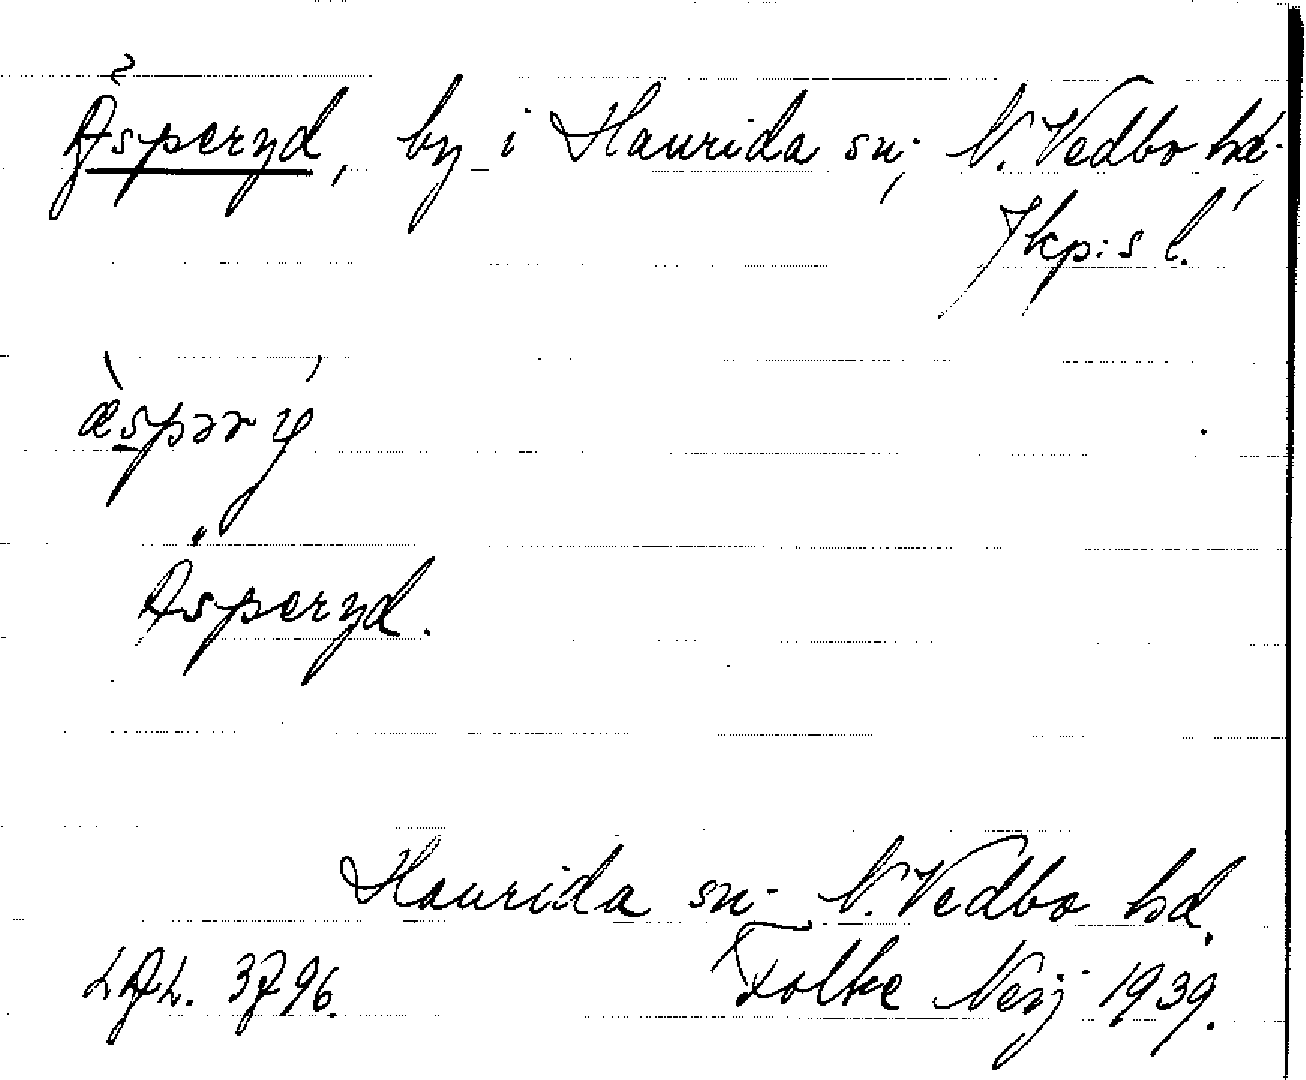 Äsperyd, by i Haurida sn, N. Vedbo hd,
Jkp:s l.
æ̀spər ý
Äsperyd.
Haurida sn. N. Vedbo hd.
LAL. 3796. Folke Neij 1939.